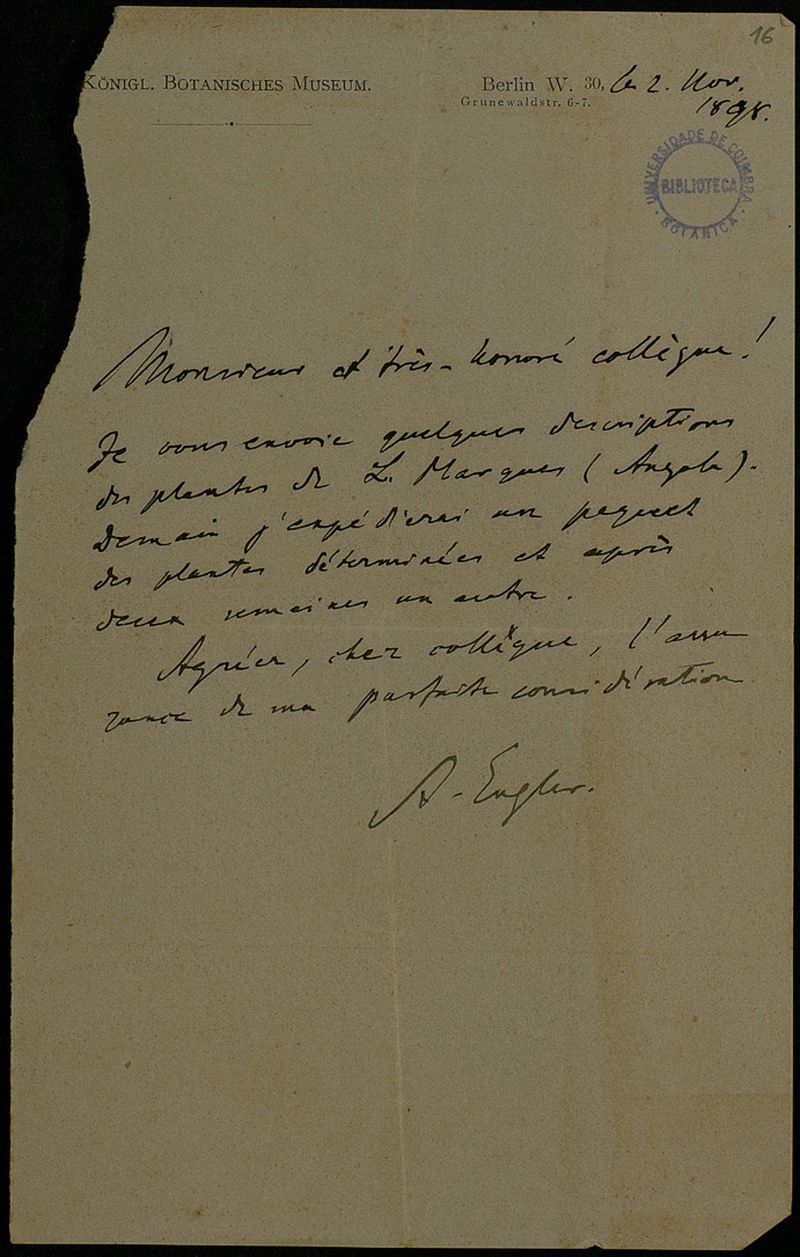 16
KÖNIGL. BOTANISCHES MUSEUM.
Berlin W. 30, le 2. Nov.
Grunewaldstr. 6-7.
1898.
UNIVERSIDADE DE COIMBRA
BIBLIOTECA
BOTANICA
Monsieur et très-honoré collègue!
Je vous envoie quelques descriptions
des plantes de L. Marques (Angola).
Demain j'expédierai un paquet
des plantes déterminées et après
deux semaines un autre.
Agréez, cher collègue, l'assu
rance de ma parfaite considération
A. Engler.